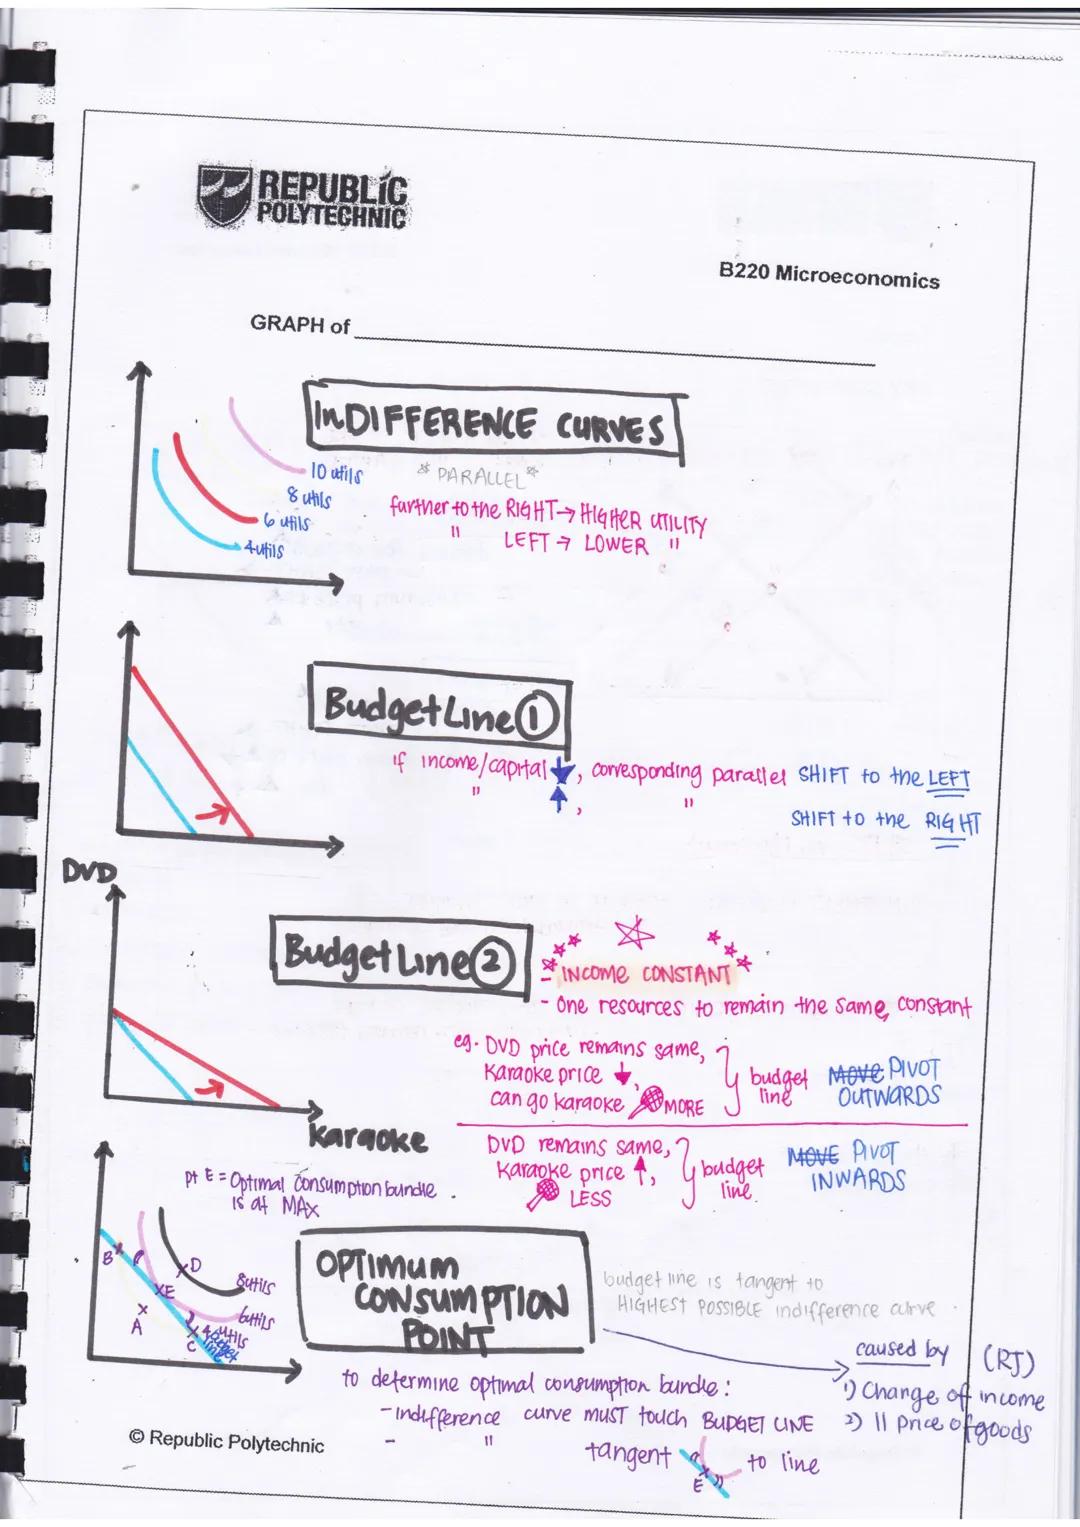 REPUBLIC
POLYTECHNIC
B220 Microeconomics
GRAPH of
InDIFFERENCE CURVES
* PARALLEL *
10 utils
8 utils
6 utils
4 utils
further to the RIGHT → HIGHER UTILITY
" LEFT → LOWER "
Budget Line ①
if income/capital ↓, corresponding parallel SHIFT to the LEFT
" ↑, " SHIFT to the RIGHT
DVD
Budget Line ②
- INCOME CONSTANT
- One resources to remain the same, constant
eg. DVD price remains same,
Karaoke price ↓,
can go karaoke MORE
budget line
MOVE PIVOT
OUTWARDS
Karaoke
DVD remains same,
Karaoke price ↑,
LESS
budget line.
MOVE PIVOT
INWARDS
pt E = Optimal consumption bundle.
is at MAX
B
D
E
A
C
8utils
6utils
4utils
OPTIMUM
CONSUMPTION
POINT
budget line is tangent to
HIGHEST POSSIBLE indifference curve.
caused by (RJ)
1) Change of income
2) " price of goods
to determine optimal consumption bundle:
- indifference curve MUST touch BUDGET LINE
- " tangent to line
E
© Republic Polytechnic